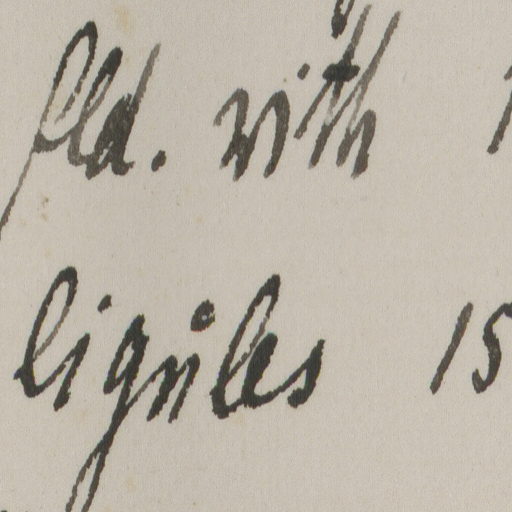 fld. with
ligules 15